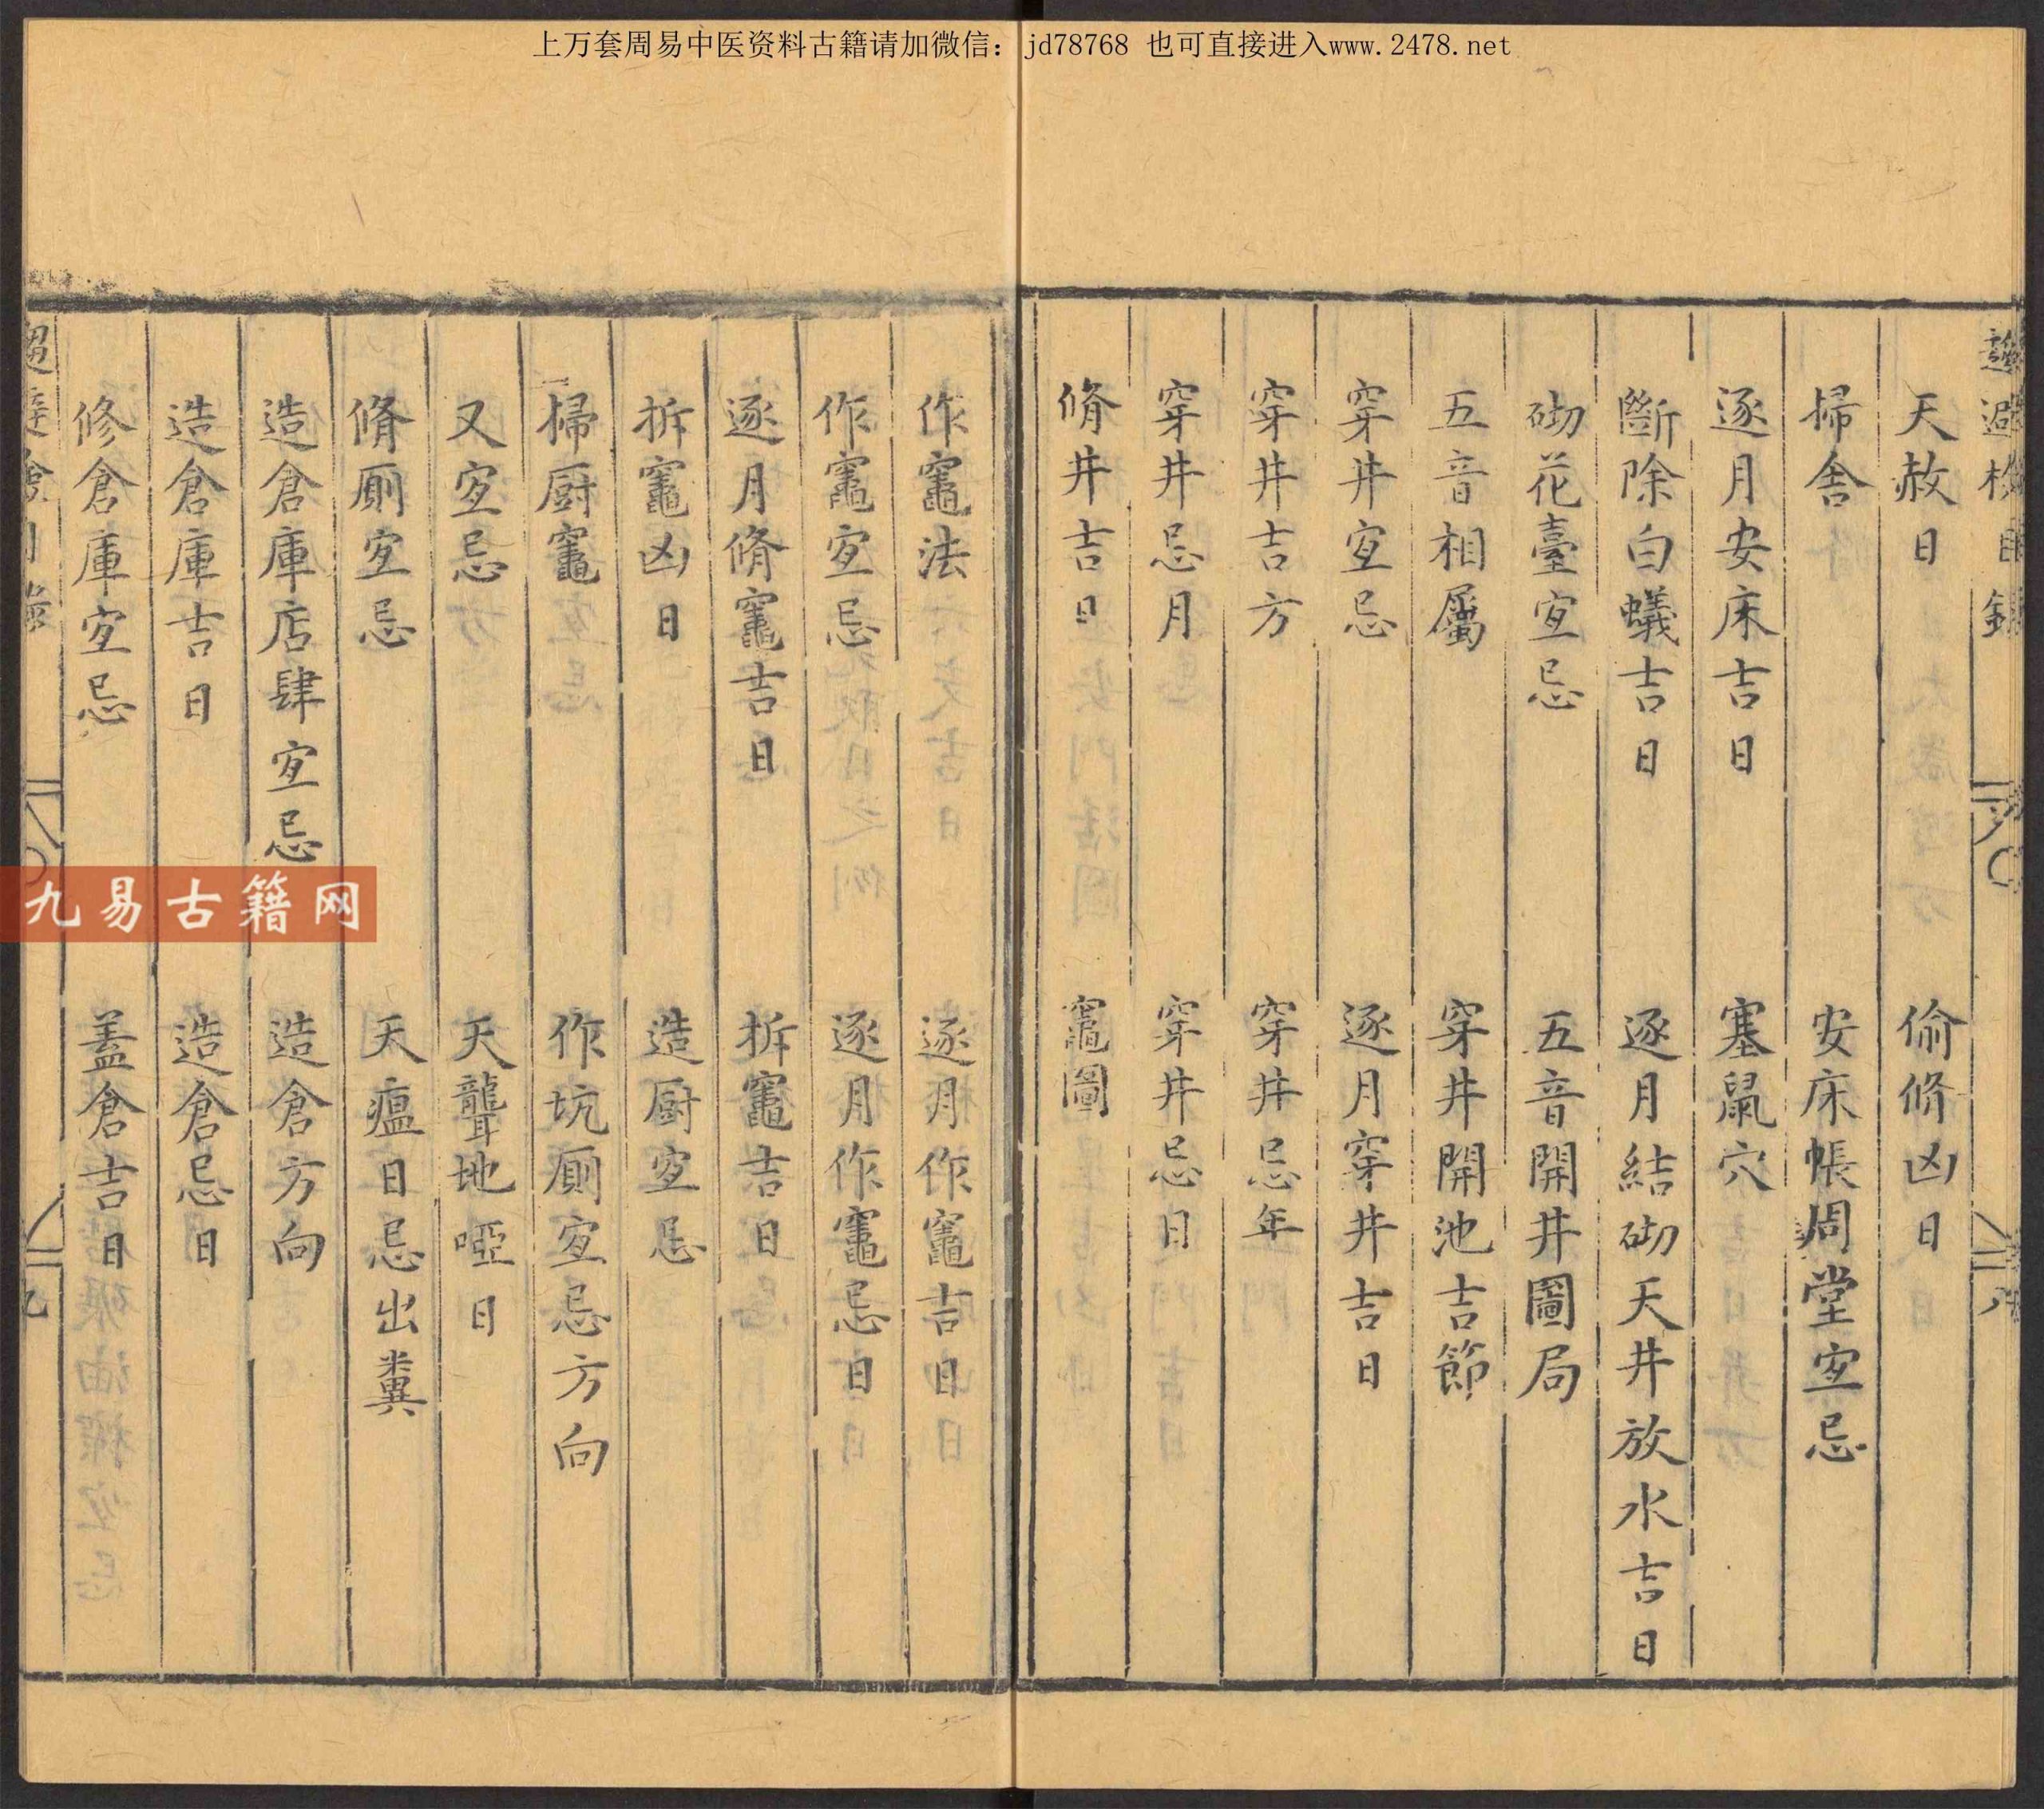 上万套周易中医资料古籍请加微信：jd78768 也可直接进入www.2478.net
天赦日 偷脩凶日
掃舍 安床帳周堂宜忌
逐月安床吉日 塞鼠穴
斷除白蟻吉日 逐月結砌天井放水吉日
砌花臺宜忌 五音開井圖局
五音相屬 穿井開池吉節
穿井宜忌 逐月穿井吉日
穿井吉方 穿井忌年
穿井忌月 穿井忌日
脩井吉日 竈圖
作竈法 逐月作竈吉日
作竈宜忌 逐月作竈忌日
逐月脩竈吉日 拆竈吉日
拆竈凶日 造厨宜忌
掃厨竈 作坑厠宜忌方向
又宜忌 天聾地啞日
脩厠宜忌 天瘟日忌出糞
造倉庫店肆宜忌 造倉方向
造倉庫吉日 造倉忌日
修倉庫宜忌 蓋倉吉日
九
九易古籍网